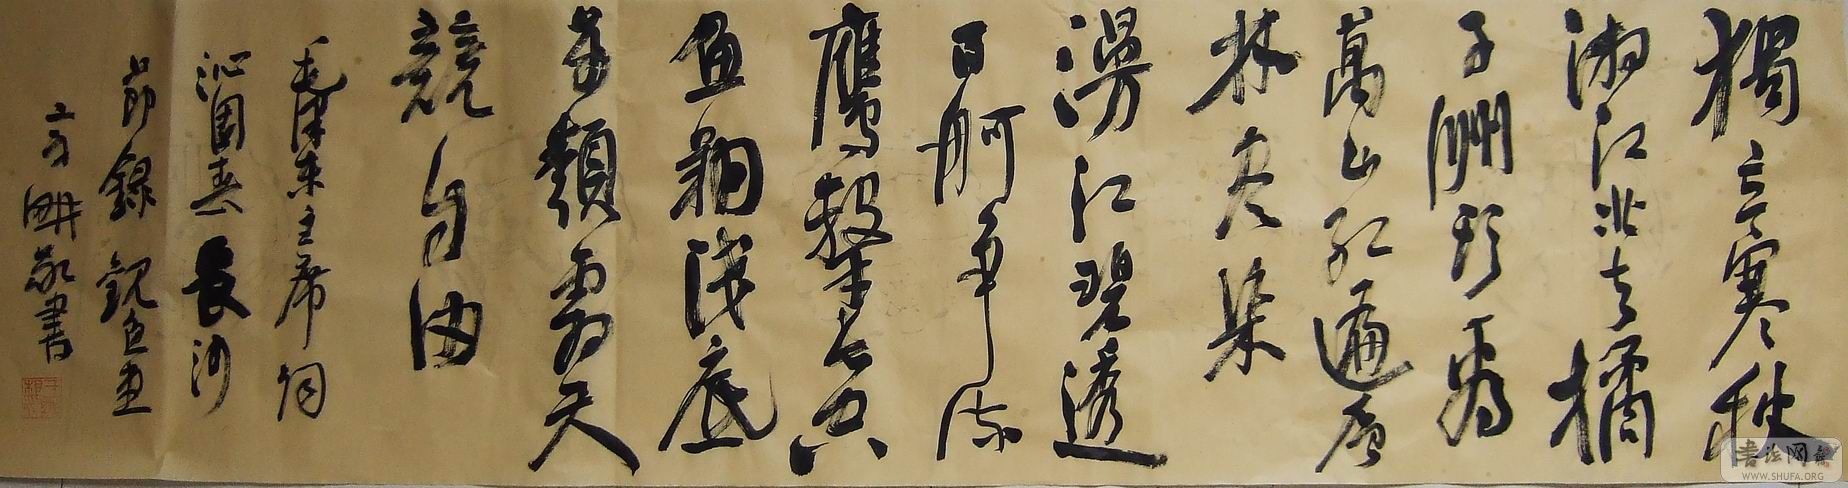 獨立寒秋
湘江北去橘
子洲頭看
萬山紅遍層
林尽染
漫江碧透
百舸爭流
鷹擊長空
魚翔淺底
萬類霜天
競自由
毛澤東主席詞
沁園春 長沙
節錄
敬書
書法网
WWW.SHUFA.ORG